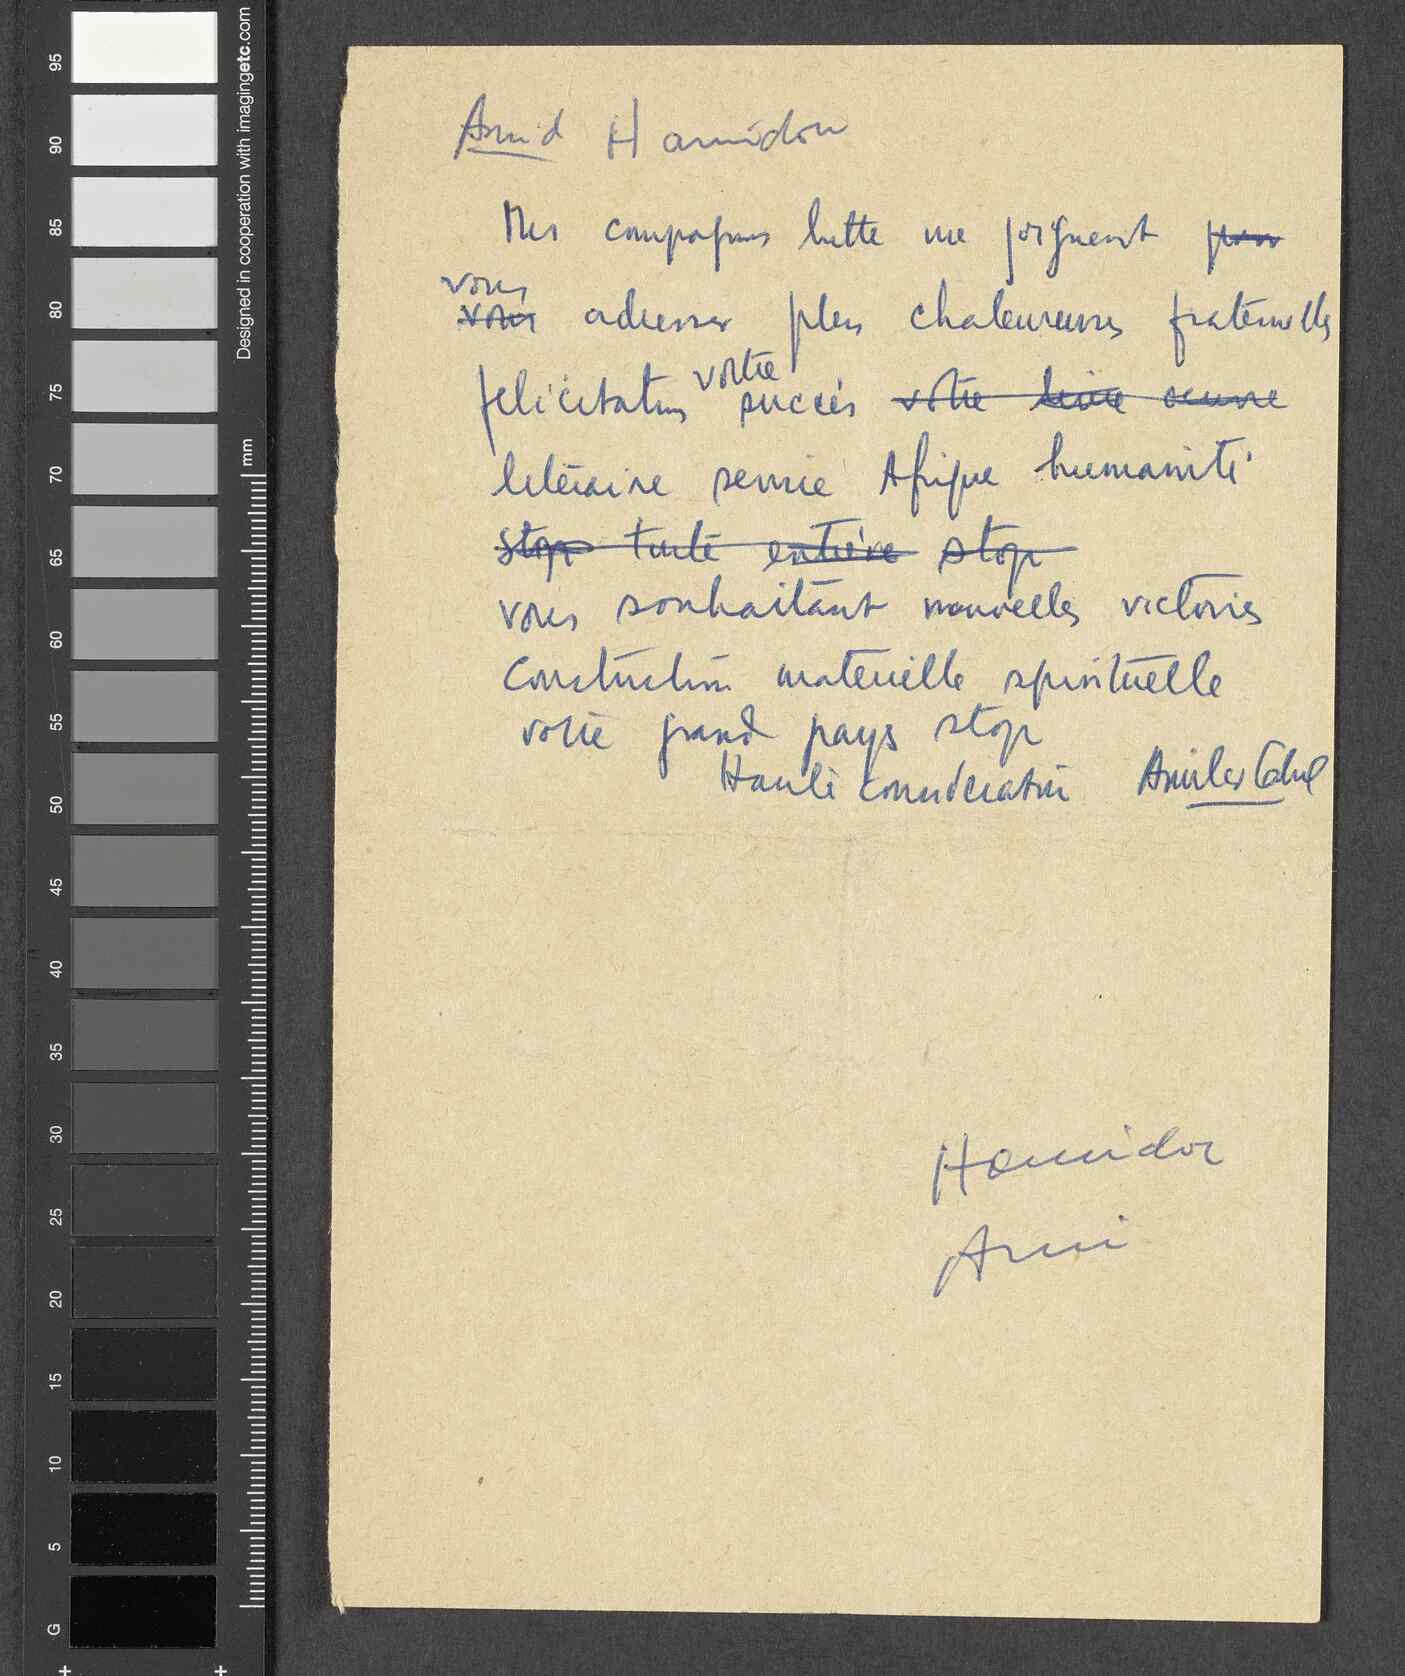 Amid Hamidou
Mes compagnons lutte me joignent pour
vous
vous adresser plus chaleureuses fraternelles
felicitations votre succès votre livre oeuvre
litéraire service Afrique humanité
stop toute entière stop
vous souhaitant nouvelles victoires
construction materielle spirituelle
votre grand pays stop
Haute considération Amilcar Cabral
Hamidou
Ami
Designed in cooperation with imagingetc.com
mm
95
90
85
80
75
70
65
60
55
50
45
40
35
30
25
20
15
10
5
G